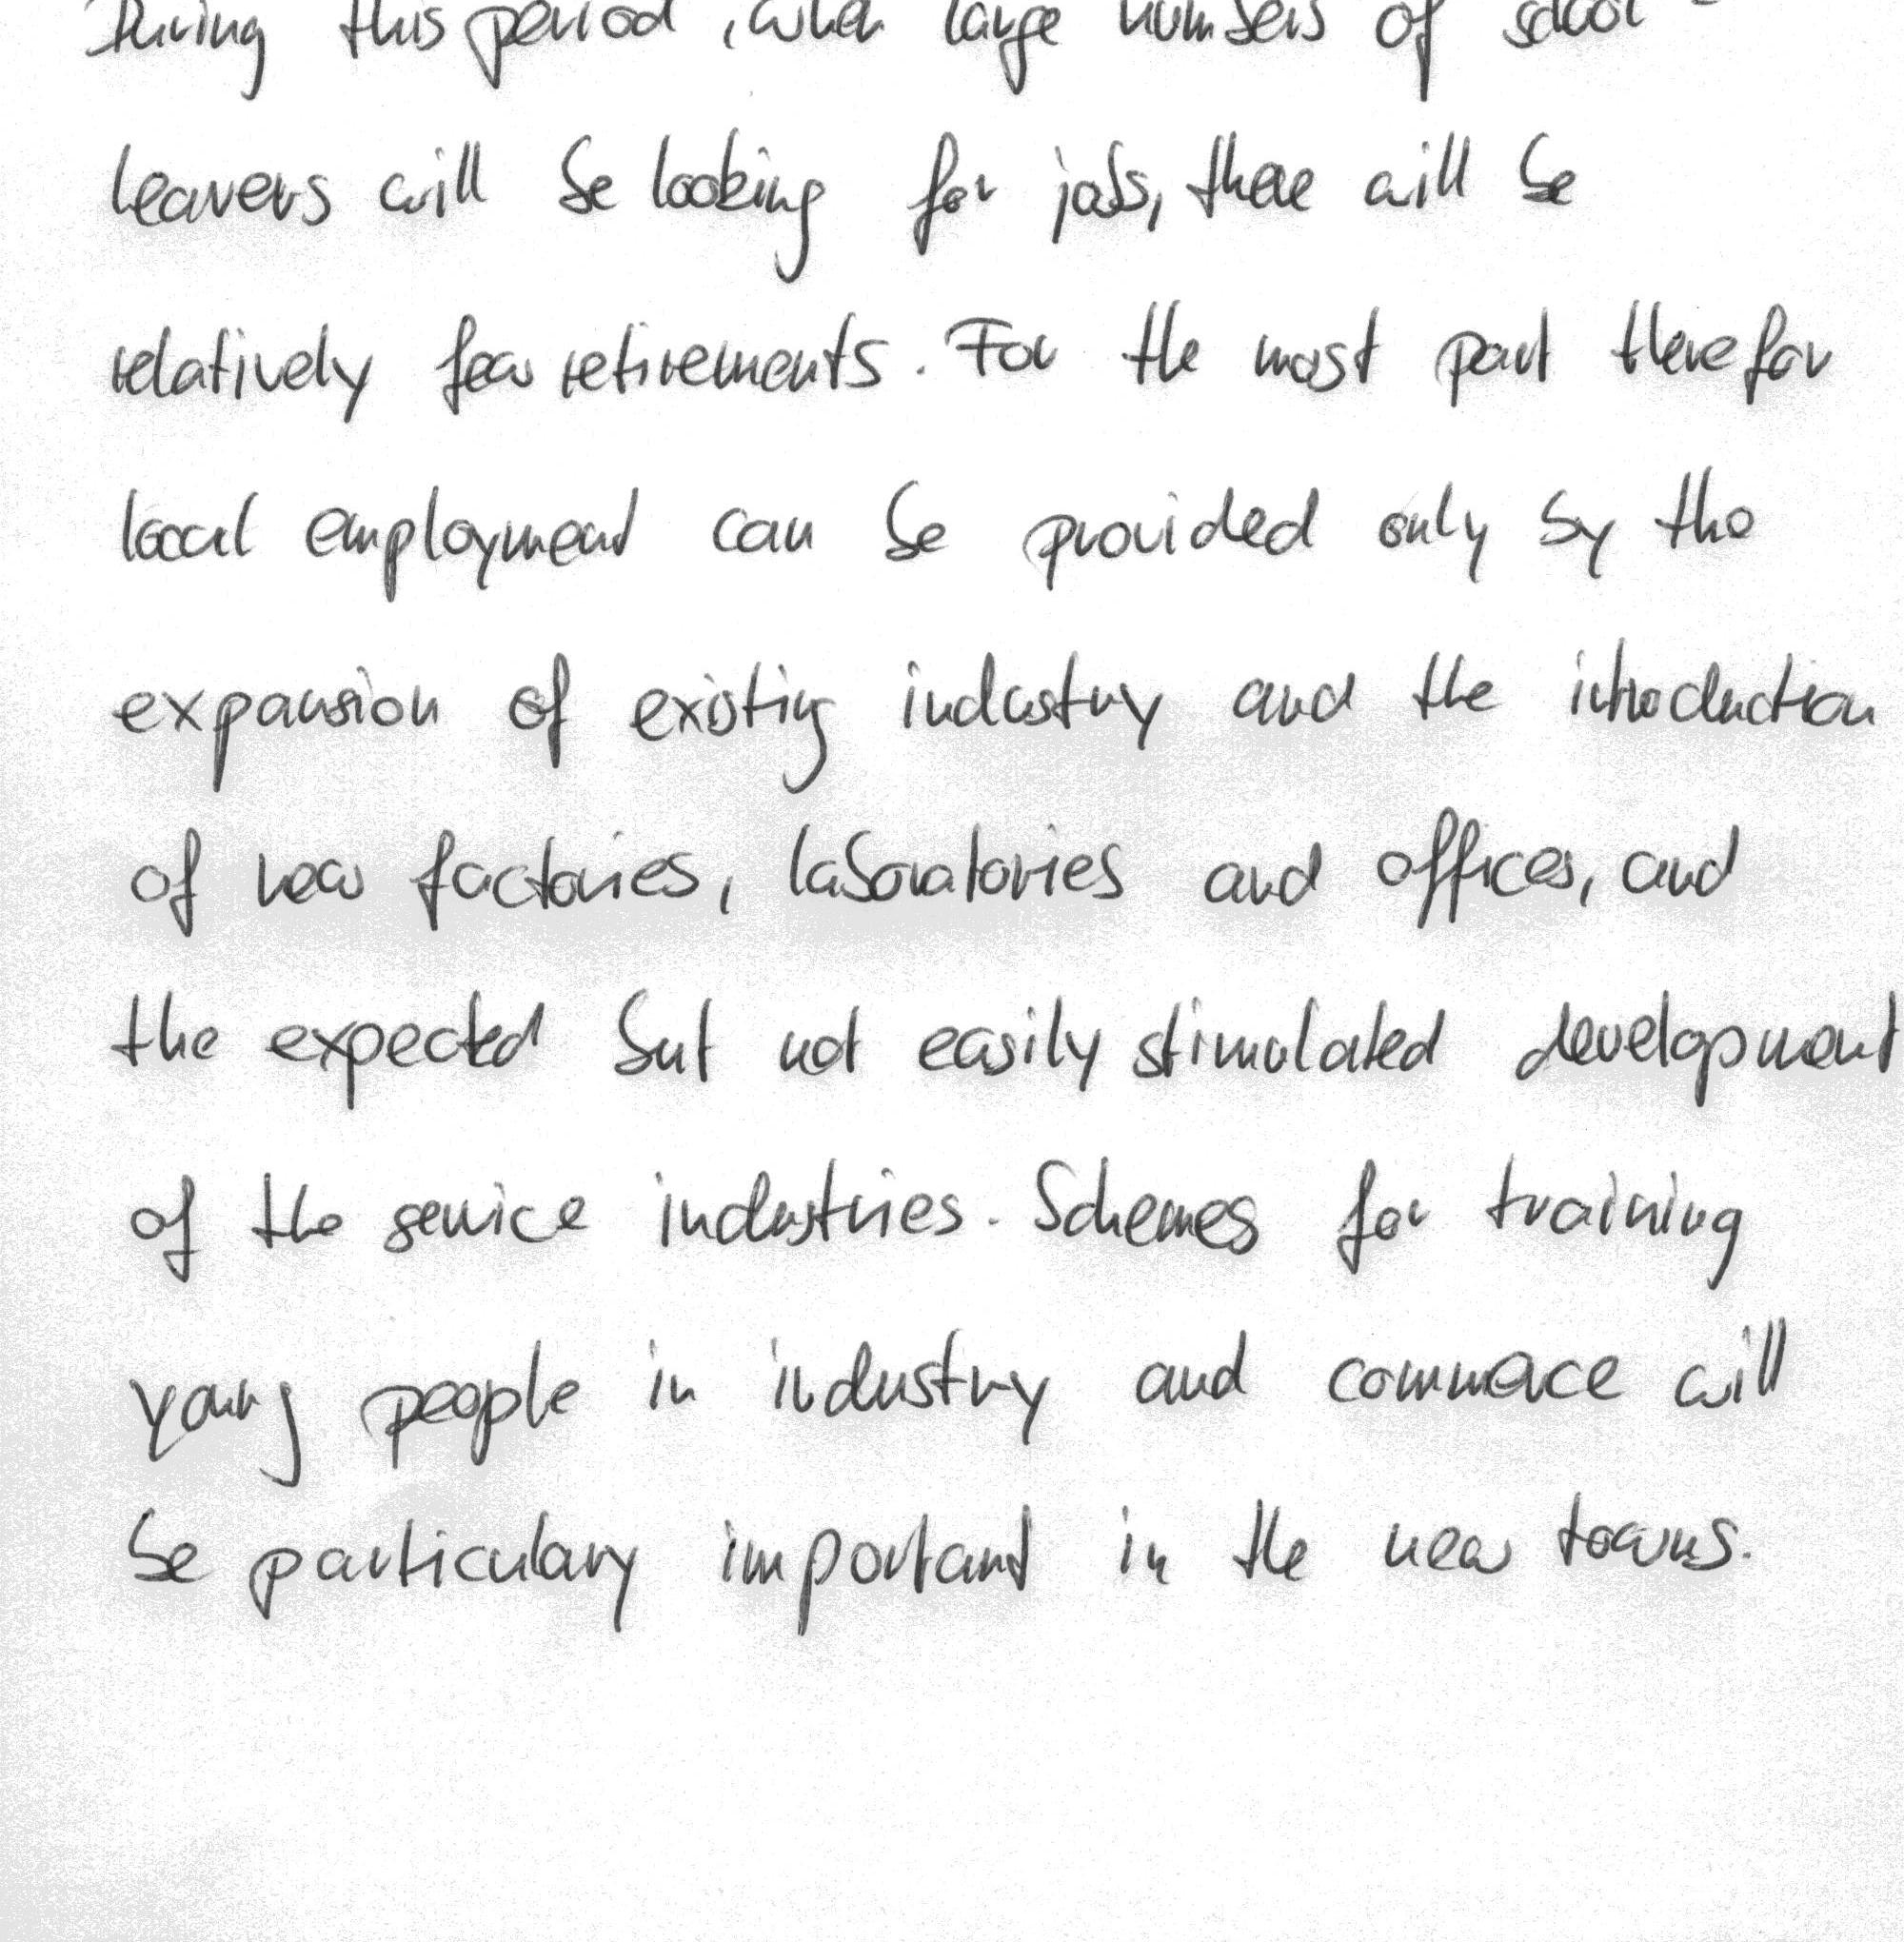 During this period, when large numbers of school-
leavers will be looking for jobs, there will be
relatively few retirements. For the most part therefor
local employment can be provided only by the
expansion of existing industry and the introduction
of new factories, laboratories and offices, and
the expected but not easily stimulated development
of the service industries. Schemes for training
young people in industry and commerce will
be particulary important in the new towns.